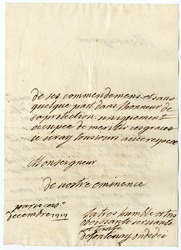 de ses commendemens et sans
quelque part dans l'honneur de
sa protection, uniquement
occupee de meriter ses graces
je seray tousiours avec respect
Monseigneur
de vostre eminence
paris ce
decembre
la tres humble et tres
obeissante servante